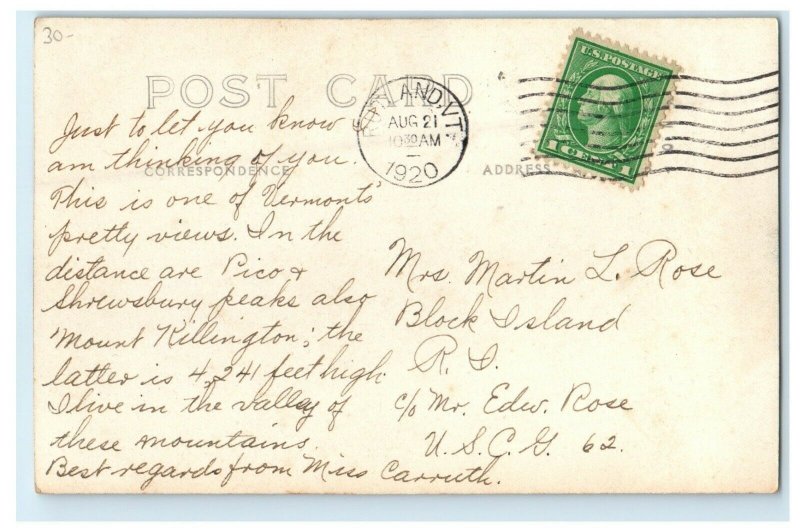 30-
POST CARD
CORRESPONDENCE
ADDRESS
RUTLAND, VT.
AUG 21
10 30 AM
1920
U.S. POSTAGE
1 CENT 1
Just to let you know
am thinking of you.
This is one of Vermonts'
pretty views. In the
distance are Pico &
Shrewsbury peaks also
Mount Killington; the
latter is 4,241 feet high.
I live in the valley of
these mountains.
Best regards from Miss Carruth.
Mrs. Martin L. Rose
Block Island
R. I.
c/o Mr. Edw. Rose
U.S.C.G. 62.